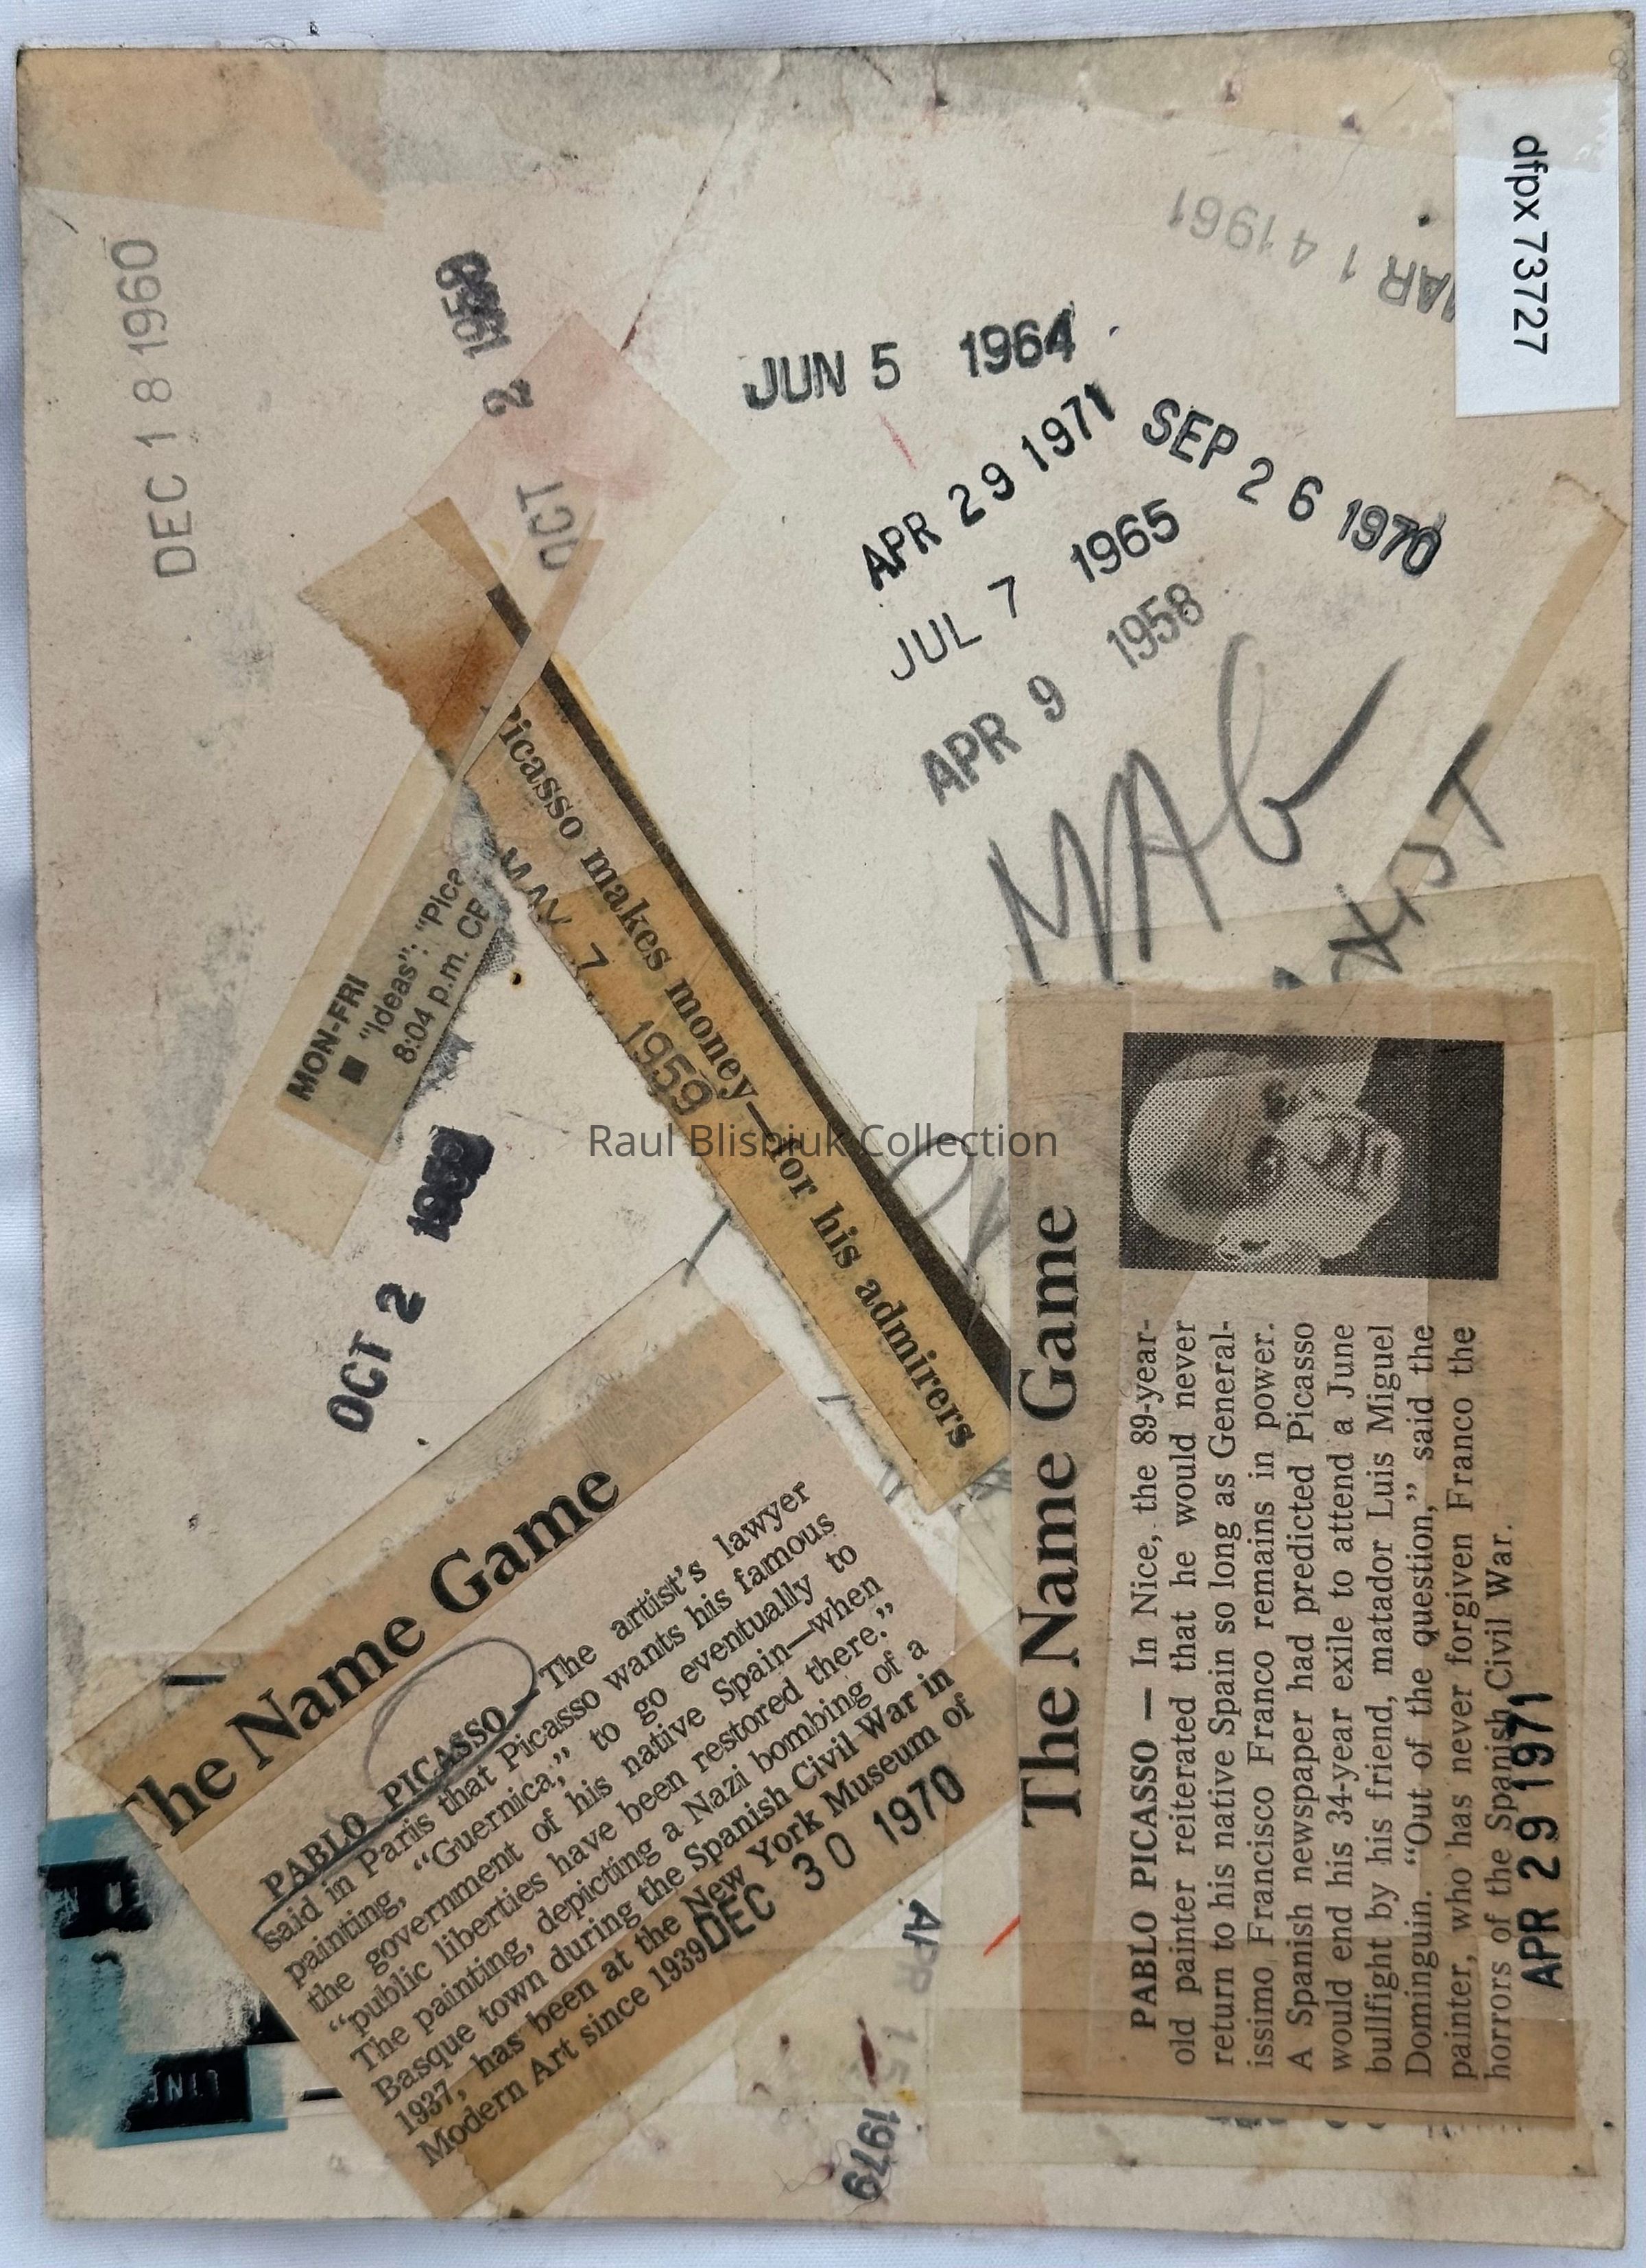 dfpx 73727
MAR 1 4 1961
DEC 1 8 1960
OCT 2
JUN 5 1964
APR 29 1971
SEP 26 1970
JUL 7 1965
APR 9 1958
MAG
Picasso makes money—for his admirers
MAY 7 1959
MON-FRI
■ "Ideas": "Pica
8:04 p.m. CB
Raul Blisniuk Collection
OCT 2
The Name Game
PABLO PICASSO—The artist's lawyer
said in Paris that Picasso wants his famous
painting, "Guernica," to go eventually to
the government of his native Spain—when
"public liberties have been restored there."
The painting, depicting a Nazi bombing of a
Basque town during the Spanish Civil War in
1937, has been at the New York Museum of
Modern Art since 1939
DEC 30 1970
The Name Game
PABLO PICASSO — In Nice, the 89-year-
old painter reiterated that he would never
return to his native Spain so long as General-
issimo Francisco Franco remains in power.
A Spanish newspaper had predicted Picasso
would end his 34-year exile to attend a June
bullfight by his friend, matador Luis Miguel
Dominguin. "Out of the question," said the
painter, who has never forgiven Franco the
horrors of the Spanish Civil War.
APR 29 1971
APR 15 1979
LINE